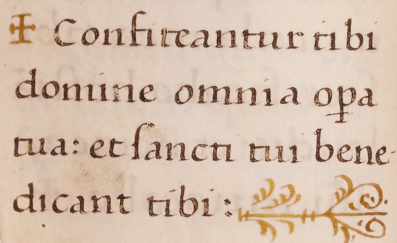 ✠ Confiteantur tibi
domine omnia oꝑa
tua: et ſancti tui bene-
dicant tibi: